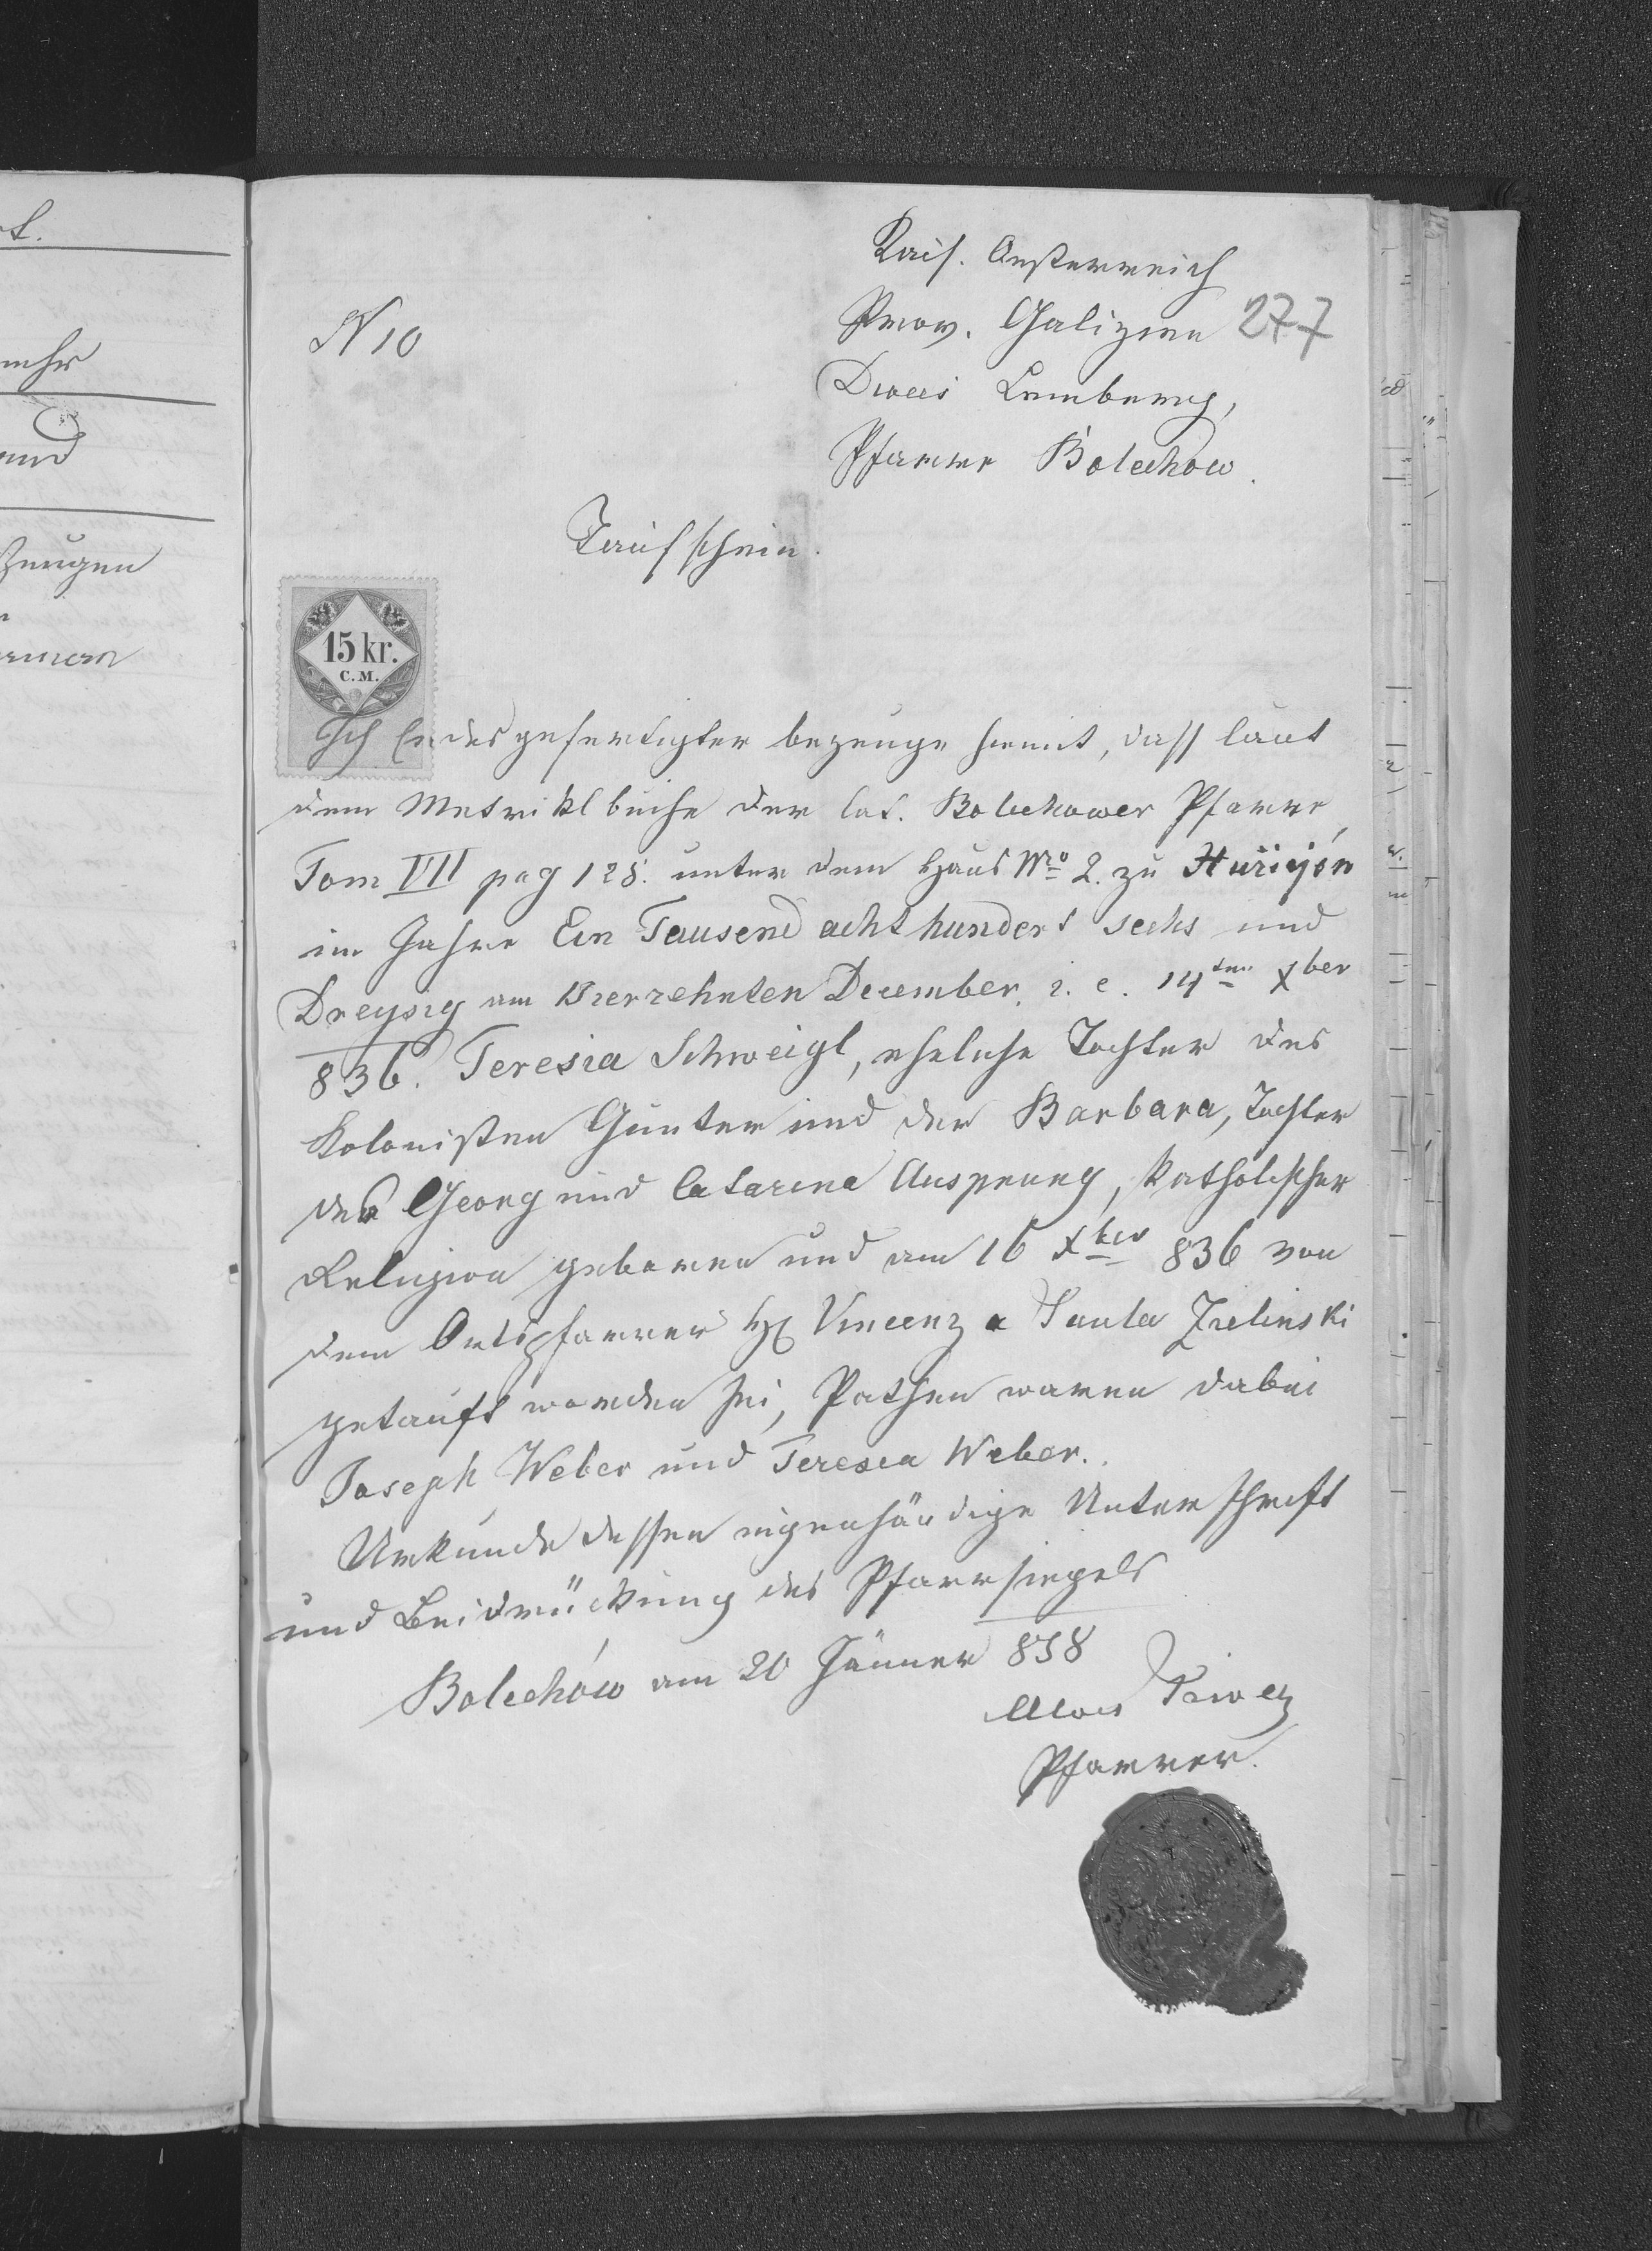 Kais. Oesterreich
N 10
Prov. Galizien 277
Dioces Lemberg,
Pfarre Bolechow.
Taufschein.
15 kr.
C.M.
Ich Endesgefertigter bezeuge hiemit, dass laut
dem Metrikbuche der lat. Bolechower Pfarre,
Tom VII pag 128. unter dem Haus Nro 2. zu
im Jahre Ein Tausend acht hundert sechs und
Dreysig am Vierzehnten December. i. e. 14ten Xber
836. Teresia Schweigl, eheliche Tochter des
Kolonisten Günter und der Barbara, Tochter
des Georg und Catarina Ausprung, katholischer
Religion geboren und am 16 Xber 836 von
dem Ortspfarrer H. Vincenz a Paula Zielinski
getauft worden sei, Pathen waren dabei
Joseph Weber und Teresea Weber.
Urkunde dessen eigenhändige Unterschrift
und Beidrückung des Pfarrsiegels
Bolechów am 20 Jänner 858
Alois
Pfarrer.
mehr
und
Zeugen